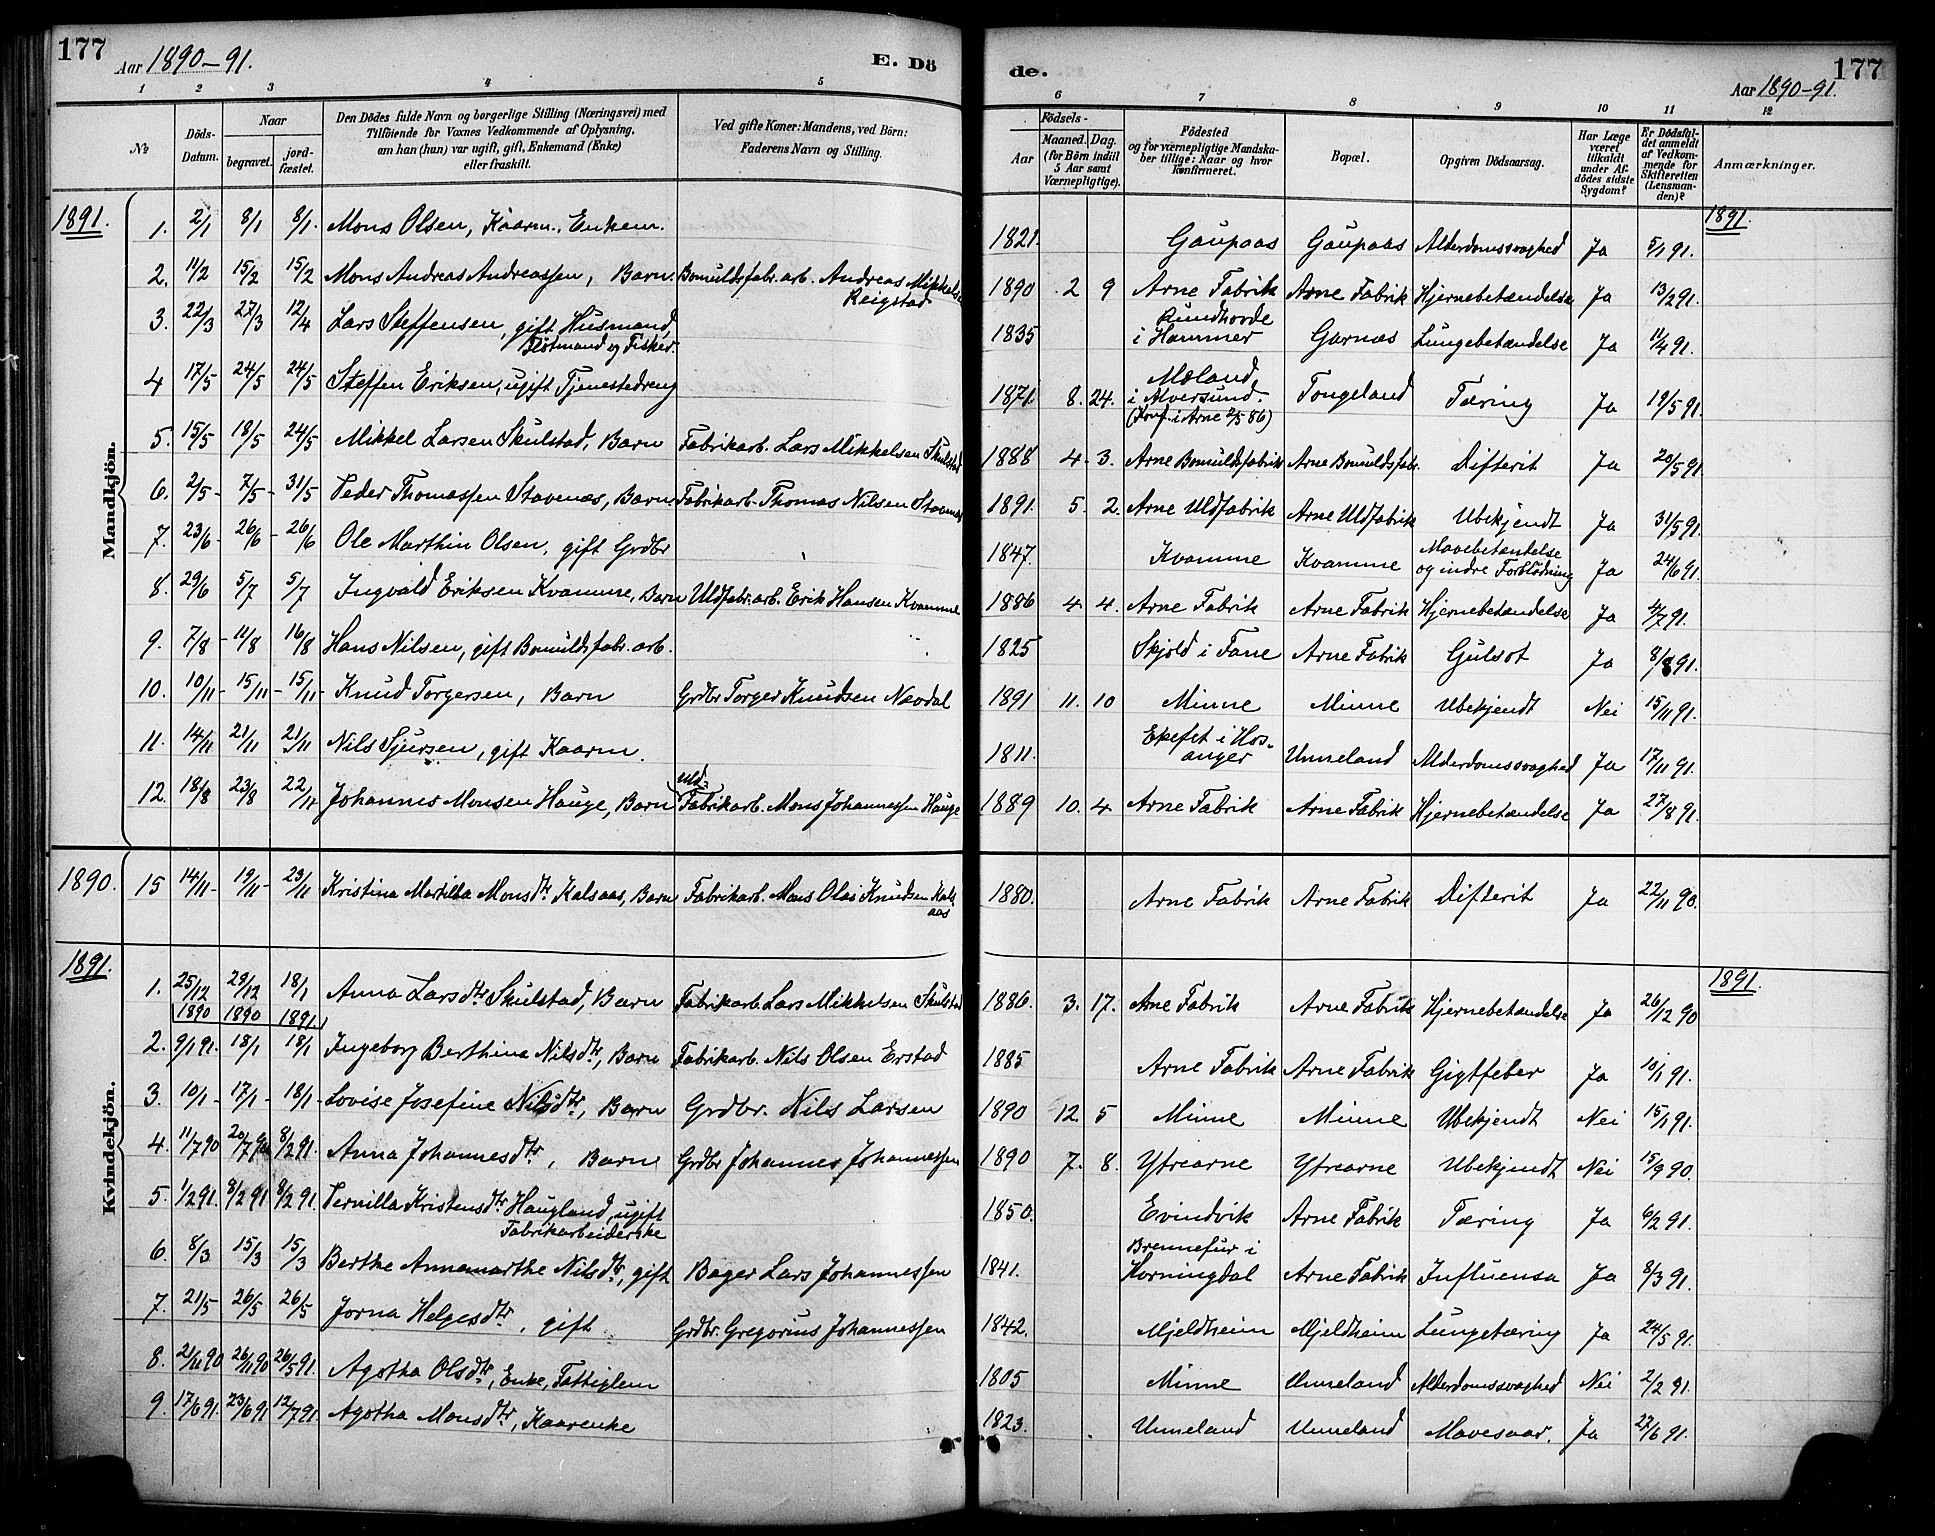 177
Aar 1890-91.
E. Dö
1 2 3 4 5
No
Döds-Datum.
Naar
begravet.
jordfæstet.
Den Dödes fulde Navn og borgerlige Stilling (Næringsvei) med
Tilföiende for Voxnes Vedkommende af Oplysning,
om han (hun) var ugift, gift, Enkemand (Enke)
eller fraskilt.
Ved gifte Koner: Mandens, ved Börn:
Faderens Navn og Stilling.
1891.
Mandkjön.
1. 2/1 8/1 8/1 Mons Olsen, Kaarm., Enkem.
2. 11/2 15/2 15/2 Mons Andreas Andreassen, Barn. Bomuldsfabr. arb. Andreas Mikkelse
Reigstad
3. 22/3 27/3 12/4 Lars Steffensen, gift Husmand,
Flötmand og Fisker.
4 17/5 24/5 24/5 Steffen Eriksen, ugift Tjenestedreng
5. 15/5 18/5 24/5 Mikkel Larsen Skulstad, Barn Fabrikarb. Lars Mikkelsen Skulstad
6. 2/5 - 7/5 - 31/5 Peder Thomassen Stavenæs, Barn Fabrikarb. Thomas Nilsen Stavenæs
7. 23/6 - 26/6 - 26/6 Ole Marthin Olsen, gift Grdbr
8. 29/6 5/7 5/7 Ingvald Eriksen Kvamme, Barn Uldfabr. arb. Erik Hansen Kvamme
9. 7/8 - 11/8 16/8 Hans Nilsen, gift Bomuldsfabr. arb.
10. 10/11 - 15/11 - 15/11 - Knud Torgersen, Barn Grdbr Torger Knudsen Navdal
11. 14/11 21/11 21/11 Nils Sjursen, gift Kaarm.
12. 18/8 23/8 22/11 Johannes Monsen Hauge, Barn Uld-
Fabrikarb. Mons Johannessen Hauge
1890. 15 14/11 - 19/11 - 23/11 Kristina Martilda Monsdtr Kalsaas, Barn Fabrikarb. Mons Olai Knudsen Kals
aas
1891.
Kvindekjön.
1. 25/12 29/12 18/1 Anna Larsdtr Skulstad, Barn Fabrikarb Lars Mikkelsen Skulstad
1890 1890 1891
2. 9/1 91. 18/1 18/1 Ingeborg Berthina Nilsdtr, Barn Fabrikarb. Nils Olsen Erstad
3. 10/1 - 17/1 - 18/1 - Lovise Josefine Nilsdtr, Barn Grdbr. Nils Larsen
4. 11/7 90 20/7 90 8/2 91. Anna Johannesdtr, Barn Grdbr Johannes Johannessen
5. 1/2 91. 8/2 91 8/2 91. Pernilla Kristensdtr Haugland, ugift
Fabrikarbeiderske
6. 8/3 15/3 15/3 Berthe Annamarthe Nilsdtr, gift Bager Lars Johannessen
7. 21/5 26/5 26/5 Jorna Helgesdtr, gift Grdbr. Gregorius Johannessen
8. 21/11 90 26/11 90 26/5 91. Agotha Olsdtr, Enke, Fattiglem
9. 17/6 91. 23/6 91 12/7 91 Agotha Monsdtr, Kaarenke
de.
177
Aar 1890-91.
6 7 8 9 10 11 12
Födsels-
Aar
Maaned. Dag.
(for Börn indtil
5 Aar samt
Værnepligtige).
Födested
og for værnepligtige Mandskaber
tillige: Naar og hvor
konfirmeret.
Bopæl.
Opgiven Dödsaarsag.
Har Læge
været
tilkaldt
under Afdödes
sidste
Sygdom?
Er Dödsfaldet
anmeldt
af Vedkommende
for
Skifteretten
(Lensmanden)?
Anmærkninger.
1891.
1821. Gaupaas Gaupaas Alderdomssvaghed Ja 5/1 91.
1890 2 9 Arne Fabrik Arne Fabrik Hjernebetændelse Ja 13/2 91.
Rundhovde
1835 i Hammer Garnæs Lungebetændelse Ja 11/4 91.
Mæland
1871. 8. 24. i Alversund Tongeland Tæring Ja 19/5 91.
(Konf. i Arne 2/5 86)
1888 4. 3. Arne Bomuldsfabrik Arne Bomuldsfabr. Difterit Ja 20/5 91
1891. 5. 2. Arne Uldfabrik Arne Uldfabrik Ubekjendt Ja 31/5 91.
1847. Kvamme Kvamme Mavebetændelse
og indre Forblödning Ja 24/6 91.
1886 4 4. Arne Fabrik Arne Fabrik Hjernebetændelse Ja 4/7 91.
1825 Skjold i Fane Arne Fabrik Gulsot Ja 8/8 91.
1891 11. 10 Minne Minne Ubekjendt Nei 15/11 91.
1811. Ekefet i Hos-
anger Unneland Alderdomssvaghed Ja 17/11 91.
1889 10. 4 Arne Fabrik Arne Fabrik Hjernebetændelse Ja 27/8 91.
1880. Arne Fabrik Arne Fabrik Difterit Ja 22/11 90.
1891.
1886. 3. 17. Arne Fabrik Arne Fabrik Hjernebetændelse Ja 26/12 90
1885 Arne Fabrik Arne Fabrik Gigtfeber Ja 10/1 91.
1890 12 5 Minne Minne Ubekjendt Nei 15/1 91.
1890 7. 8. Ytrearne Ytrearne Ubekjendt Nei 15/9 90
1850. Evindvik Arne Fabrik Tæring Ja 6/2 91.
Brennefur i
1841. Horningdal Arne Fabrik Influensa Ja 8/3 91.
1842. Mjeldheim Mjeldheim Lungetæring Ja 24/5 91.
1805 Minne Unneland Alderdomssvaghed Nei 2/2 91.
1823. Unneland Unneland Mavesaar. Ja 27/6 91.